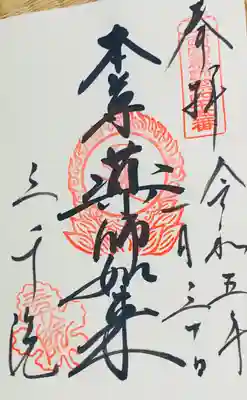 奉拝
令和五年
一月三十日
本尊薬師如来
三千院